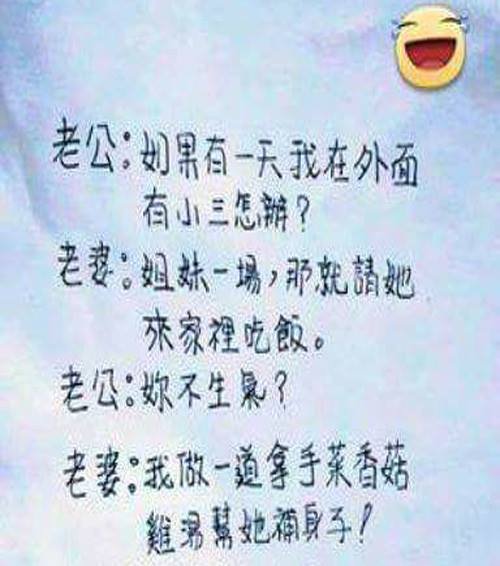 老公:如果有一天我在外面
有小三怎辦?
老婆:姐妹一場,那就請她
來家裡吃飯。
老公:妳不生氣?
老婆:我做一道拿手菜香菇
雞湯幫她補身子!